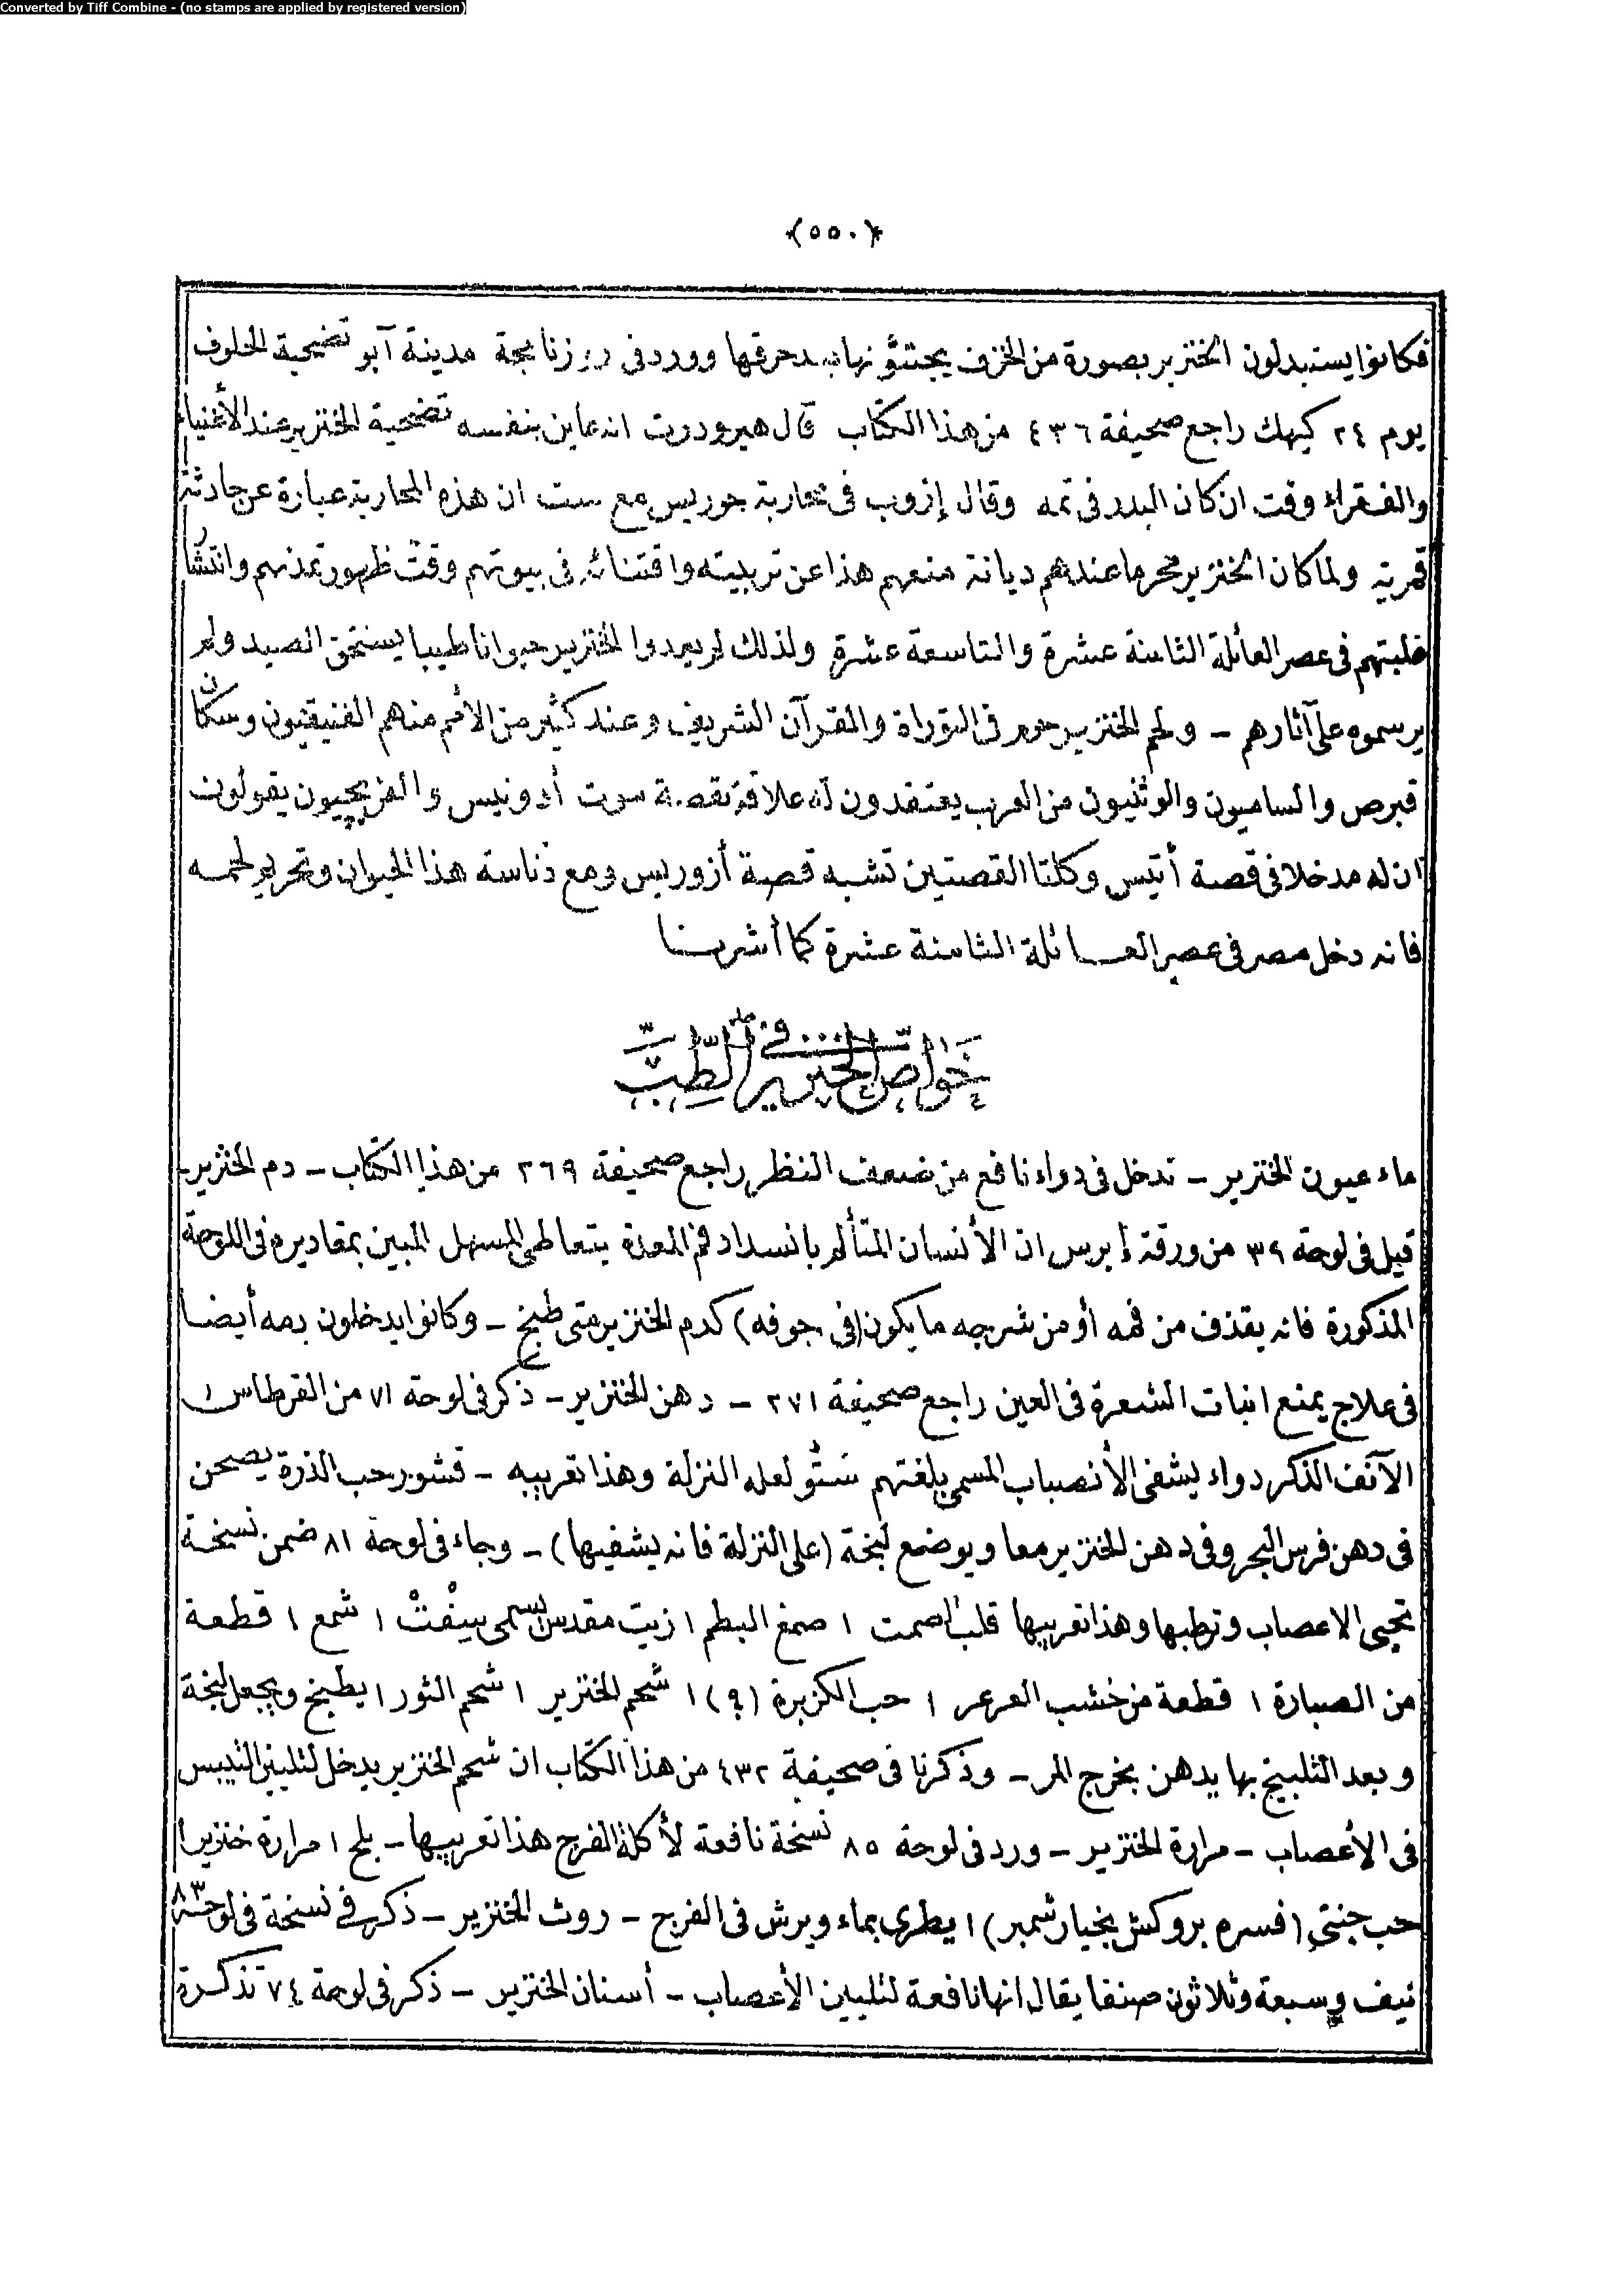 Converted by Tiff Combine - (no stamps are applied by registered version)
﴿٥٥٠﴾
فكانوا يستبدلون الخنزير بصورة من الخزف يجتنؤنها بـد حرقها وورد فى روزنامجة مدينة آبو تضحية الخلوف
يوم ٢٤ كيهك راجع صحيفة ٤٣٦ من هذا الكتاب قال هيرودوت انه عاين بنفسه تضحية الخنزير عند الأغنياء
والفقراء وقت ان كان البدر فى تمه وقال إزوب فى محاربة حوريس مع ست ان هذه المحاربة عبارة عن حادثة
قمرية ولما كان الخنزير محرما عندهم ديانة منعهم هذا عن تربيته واقتنائه فى بيوتهم وقت ظهور تمدنهم وانتشا
غلبتهم فى عصر العائلة الثامنة عشرة والتاسعة عشرة ولذلك لم يعدوا الخنزير حيوانا طيبا يستحق الصيد ولم
يرسموه على آثارهم – ولحم الخنزير حرم فى التوراة والقرآن الشريف وعند كثير من الأمم منهم الفنيقيون وسكان
قبرص والساميون والوثنيون من العرب يعتقدون له علاقة بقصة موت أدونيس والفريجيون يقولون
ان له مدخلا فى قصة أتيس وكلتا القصتين تشبه قصة أزوريس ومع دناسة هذا الحيوان وتحريم لحمه
فانه دخل مصر فى عصر العائلة الثامنة عشرة كما أشرنا
خواص الخنزير في الطب
ماء عيون الخنزير – تدخل فى دواء نافع من ضعف النظر راجع صحيفة ٢٦٩ من هذا الكتاب – دم الخنزير –
قيل فى لوحة ٣٩ من ورقة إبرس ان الأنسان المتألم بانسداد فم المعدة يتعاطى المسهل المبين بمقاديره فى اللوحة
المذكورة فانه يقذف من فمه أو من شرجه ما يكون (فى جوفه) كدم الخنزير متى طبخ – وكانوا يدخلون دمه أيضا
فى علاج يمنع انبات الشعرة فى العين راجع صحيفة ٢٧١ – دهن الخنزير – ذكر فى لوحة ٧١ من القرطاس
الآنف الذكر دواء يشفى الأنصباب المسمى بلغتهم ستو لعله النزلة وهذا تعريبه – قشور حب الذرة يصحن
فى دهن فرس البحر وفى دهن الخنزير معا ويوضع لبخة (على النزلة فانه يشفيها) – وجاء فى لوحة ٨١ ضمن نسخة
تحيى الاعصاب وترطبها وهذا تعريبها قلب الصمت ١ صمغ البطم ١ زيت مقدس يسمى سيفت ١ شمع ١ قطعة
من الصبارة ١ قطعة من خشب العرعر ١ حب الكزبرة (؟) ١ شحم الخنزير ١ شحم الثور ١ يطبخ ويجعل لبخة
وبعد التلبيخ بها يدهن بخرج المر – وذكرنا فى صحيفة ٤٣٢ من هذا الكتاب ان شحم الخنزير يدخل لتليين التيبس
فى الأعصاب – مرارة الخنزير – ورد فى لوحة ٨٥ نسخة نافعة لأكلة الفرج هذا تعريبها – بلح ١ مرارة خنزير ١
حب جنتى (فسره بروكش بخيار شمبر) ١ يطرى بماء ويرش فى الفرج – روث الخنزير – ذكر في نسخة فى لوحة ٨٣
نيف وسبعة وثلاثون صنفا يقال انها نافعة لتليين الأعصاب – أسنان الخنزير – ذكر فى لوحة ٧٤ تذكرة